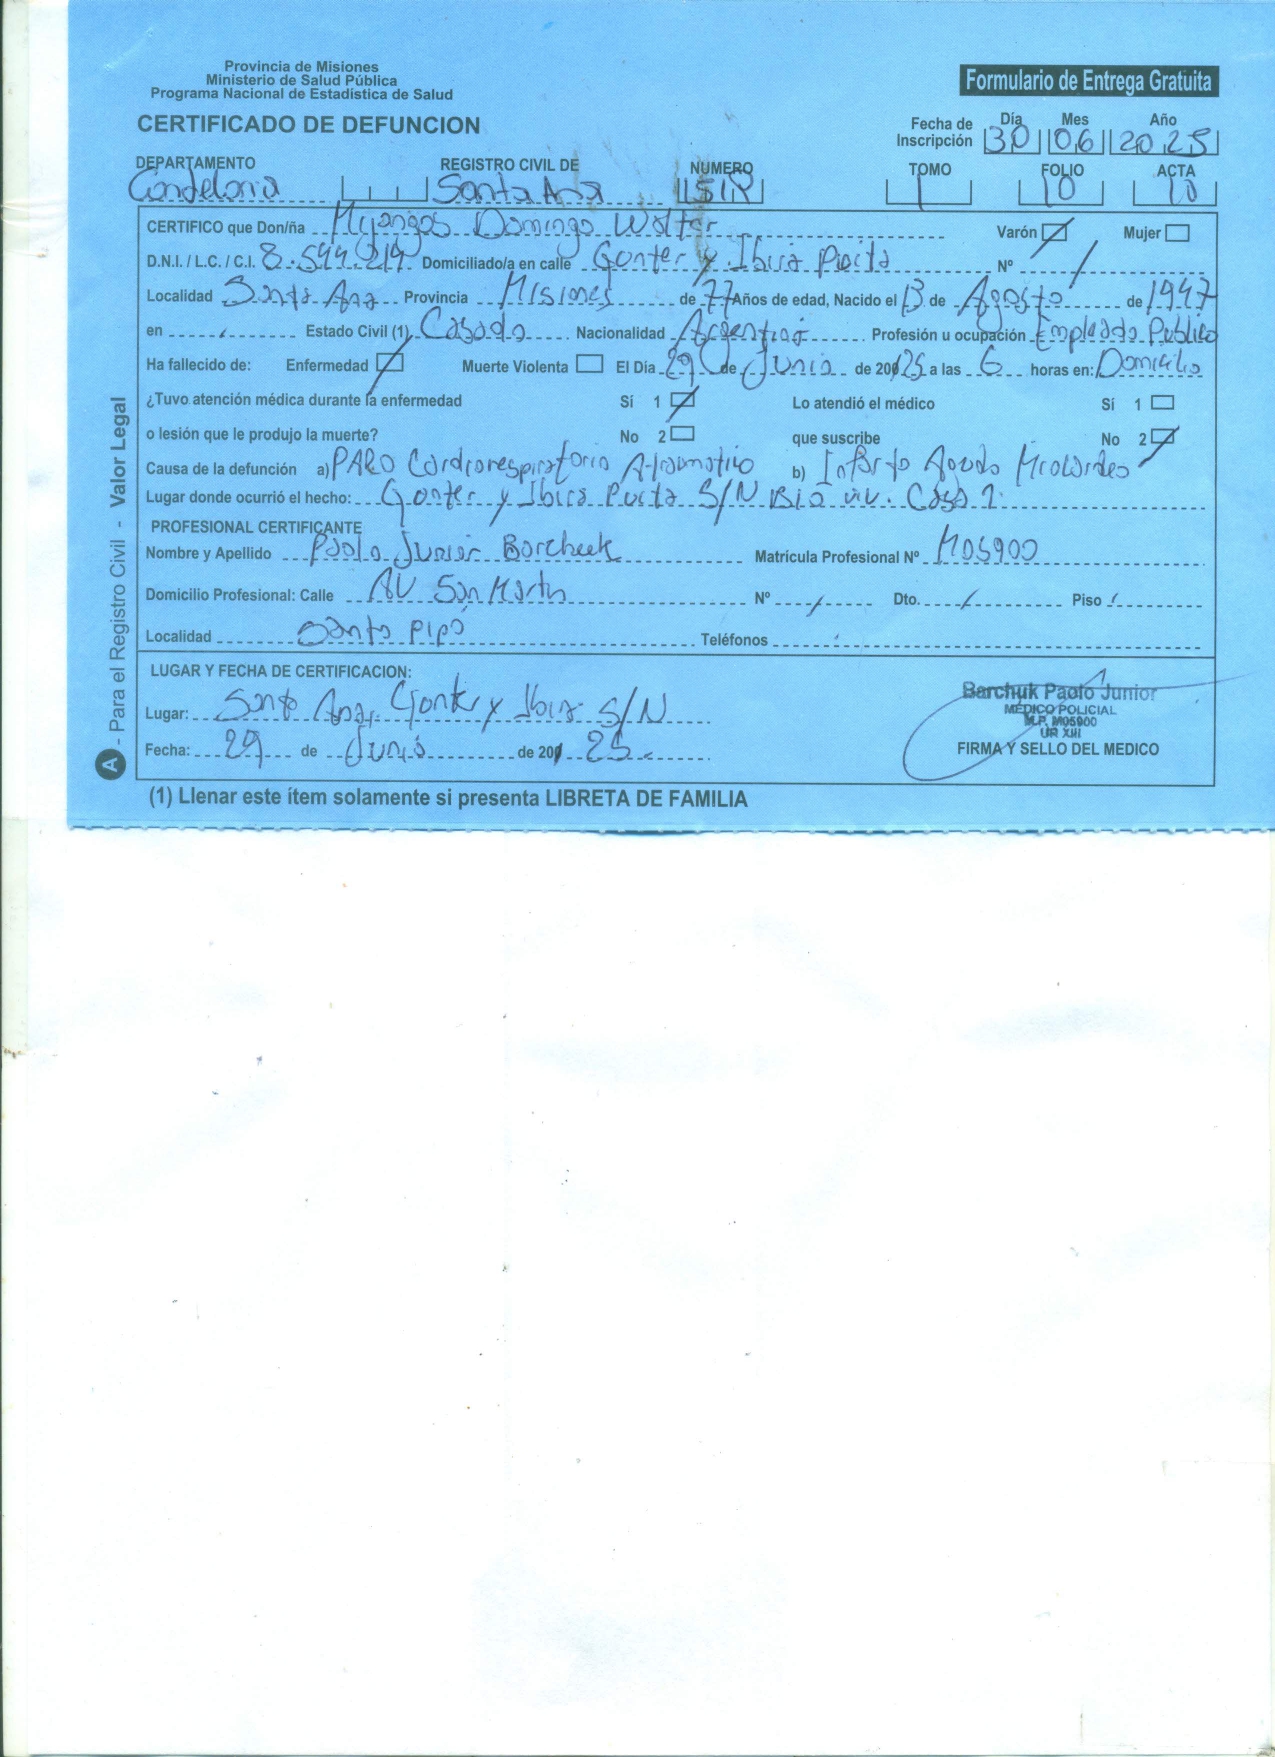 Provincia de Misiones
Ministerio de Salud Pública
Programa Nacional de Estadística de Salud
Formulario de Entrega Gratuita
CERTIFICADO DE DEFUNCION
Fecha de Inscripción Día 30 Mes 06 Año 2025
DEPARTAMENTO Candelaria REGISTRO CIVIL DE Santa Ana NUMERO TOMO 1 FOLIO 10 ACTA 10
CERTIFICO que Don/ña Domingo Walter Varón Mujer
D.N.I. / L.C. / C.I. 8.544.214 Domiciliado/a en calle Gonter y Ibira Puita Nº /
Localidad Santa Ana Provincia Misiones de 77 Años de edad, Nacido el 13 de Agosto de 1947
en Estado Civil (1) Casado Nacionalidad Argentina Profesión u ocupación Empleado Publico
Ha fallecido de: Enfermedad Muerte Violenta El Día 29 de Junio de 200 25 a las 6 horas en: Domicilio
¿Tuvo atención médica durante la enfermedad Sí 1 Lo atendió el médico Sí 1
o lesión que le produjo la muerte? No 2 que suscribe No 2
Causa de la defunción a) PARO Cardiorespiratorio Atraumatico b) Infarto Agudo
Lugar donde ocurrió el hecho: Gonter y Ibira Puita S/N Casa 1
PROFESIONAL CERTIFICANTE
Nombre y Apellido Paolo Junior Barchuk Matricula Profesional Nº M05900
Domicilio Profesional: Calle AV San Martin Nº / Dto. / Piso /
Localidad Santo Pipó Teléfonos
LUGAR Y FECHA DE CERTIFICACION:
Lugar: Santa Ana, Gonter y Ibira S/N
Fecha: 29 de Junio de 200 25
Barchuk Paolo Junior
MÉDICO POLICIAL
M.P. M05900
UR XIII
FIRMA Y SELLO DEL MEDICO
(1) Llenar este ítem solamente si presenta LIBRETA DE FAMILIA
A - Para el Registro Civil - Valor Legal